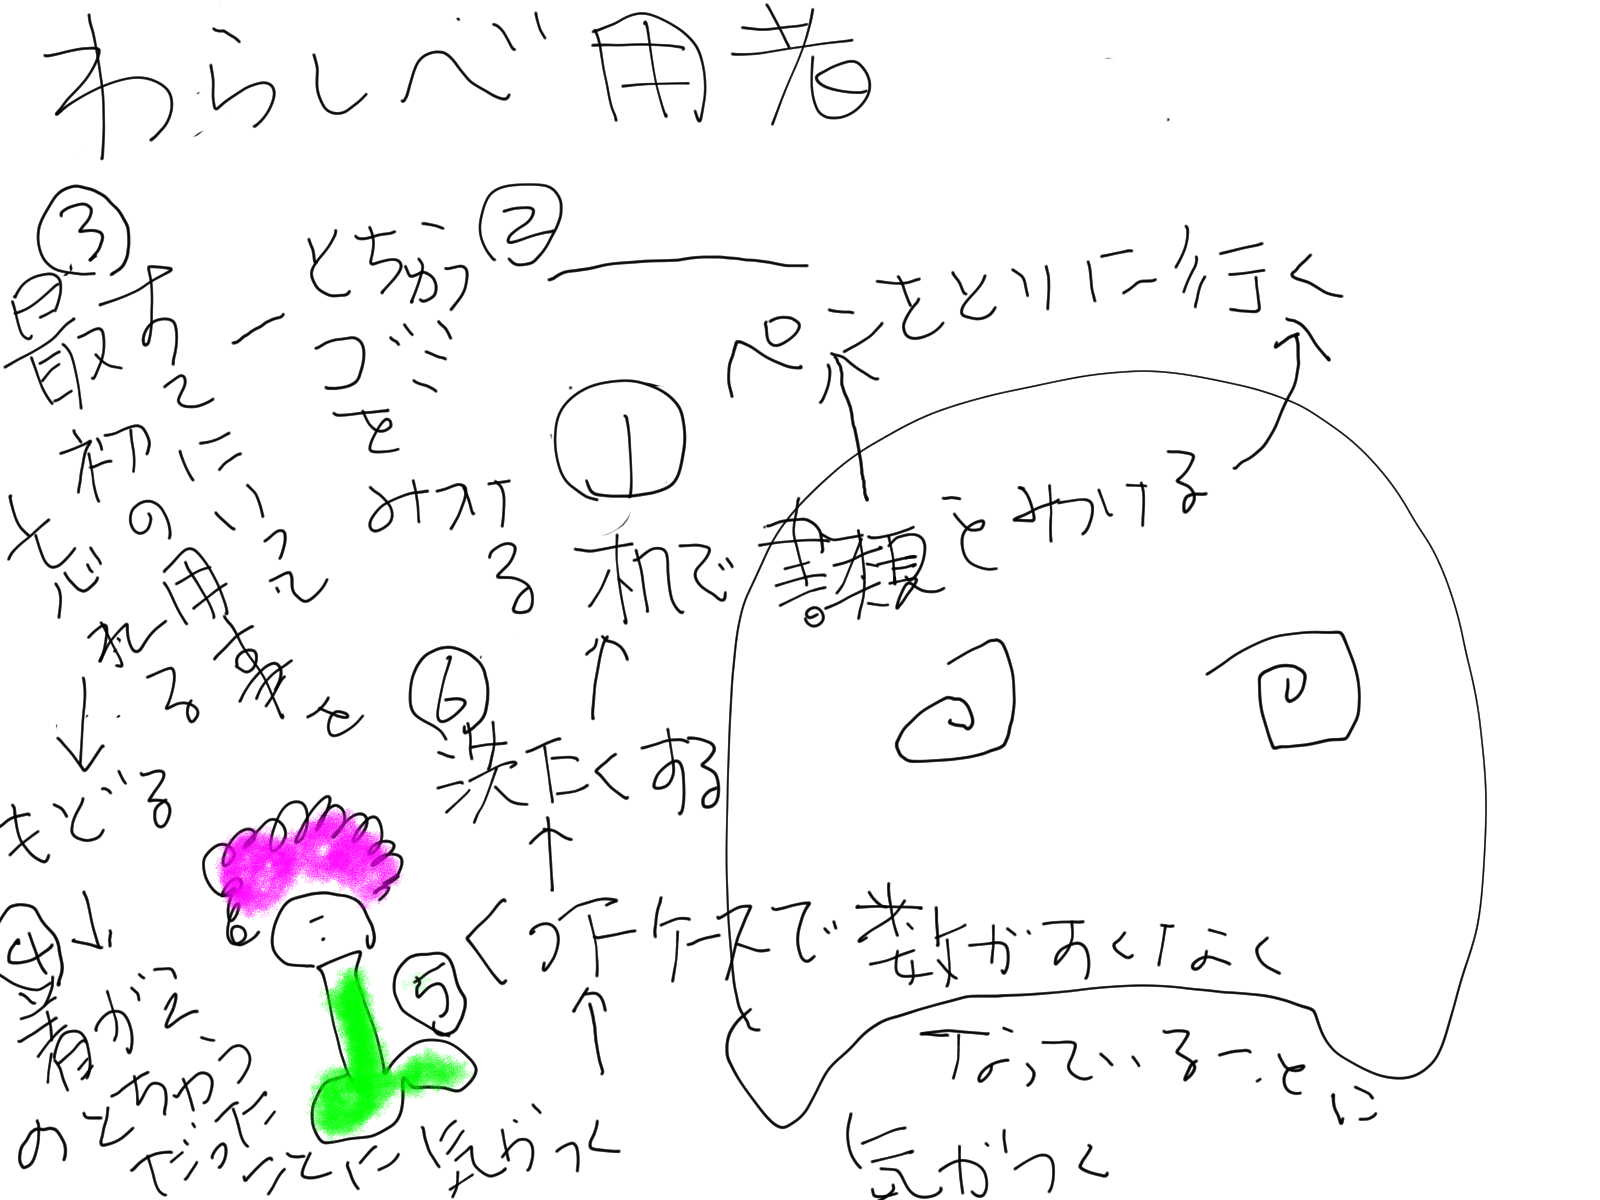 わらしべ用者
①
机で書類をみつける
ペンをとりに行く
②
とちゅう
ゴミ
を
みつけ
る
③
最初に
の
用事を
もどる
④
着がえ
のとちゅう
だった
ことに気がつく
⑤
くつ下ケースで数がすくなく
なっていることに
気がつく
⑥
洗たくする